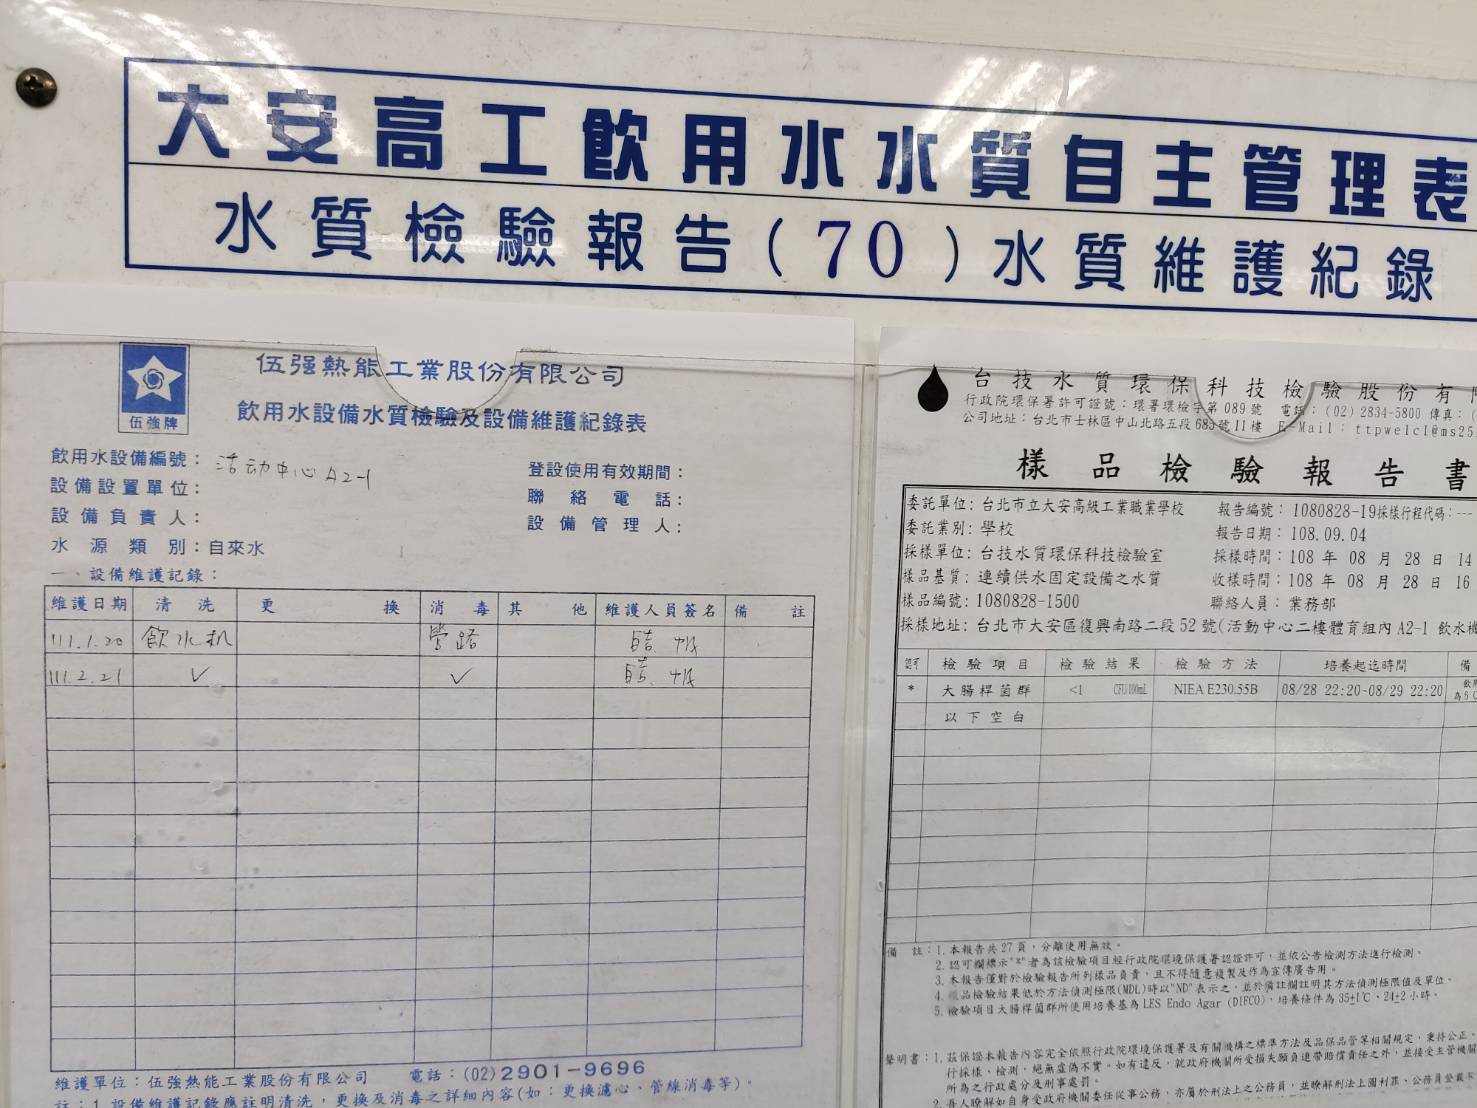 大安高工飲用水水質自主管理表
水質檢驗報告(70)水質維護紀錄
伍強牌
伍强熱能工業股份有限公司
飲用水設備水質檢驗及設備維護紀錄表
飲用水設備編號：活动中心A2-1
設備設置單位：
設備負責人：
水源類別：自來水
登設使用有效期間：
聯絡電話：
設備管理人：
一、設備維護記錄：
維護日期 清洗 更換 消毒 其他 維護人員簽名 備註
111.1.20 飲水机 管路
111.2.21 ✓ ✓
維護單位：伍強熱能工業股份有限公司 電話：(02)2901-9696
註：1.設備維護記錄應註明清洗，更換及消毒之詳細內容(如：更換濾心、管線消毒等)。
台技水質環保科技檢驗股份有
行政院環保署許可證號：環署環檢字第089號 電話：(02)2834-5800 傳真：(
公司地址：台北市士林區中山北路五段685號11樓 E-Mail：ttpwelcl@ms25.
樣品檢驗報告書
委託單位：台北市立大安高級工業職業學校 報告編號：1080828-19採樣行程代碼：---
委託業別：學校 報告日期：108.09.04
採樣單位：台技水質環保科技檢驗室 採樣時間：108年08月28日14
樣品基質：連續供水固定設備之水質 收樣時間：108年08月28日16
樣品編號：1080828-1500 聯絡人員：業務部
採樣地址：台北市大安區復興南路二段52號(活動中心二樓體育組內A2-1 飲水機
認可 檢驗項目 檢驗結果 檢驗方法 培養起迄時間 備
* 大腸桿菌群 <1 CFU/100mL NIEA E230.55B 08/28 22:20-08/29 22:20
以下空白
備註：1.本報告共27頁，分離使用無效。
2.認可欄標示"*"者為該檢驗項目經行政院環境保護署認證許可，並依公告檢測方法進行檢測。
3.本報告僅對於檢驗報告所列樣品負責，且不得隨意複製及作為宣傳廣告用。
4.樣品檢驗結果低於方法偵測極限(MDL)時以"ND"表示之，並於備註欄註明其方法偵測極限值及單位。
5.檢驗項目大腸桿菌群所使用培養基為LES Endo Agar (DIFCO)，培養條件為35±1℃、24±2小時。
聲明書：1.茲保證本報告內容完全依照行政院環境保護署及有關機構之標準方法及品保品管等相關規定，秉持公正、
行採樣、檢測，絕無虛偽不實，如有違反，就政府機關所受損失願負連帶賠償責任之外，並接受主管機關
所為之行政處分及刑事處罰。
2.吾人瞭解如自身受政府機關委任從事公務，亦屬於刑法上之公務員，並瞭解刑法上圖利罪、公務員登載不